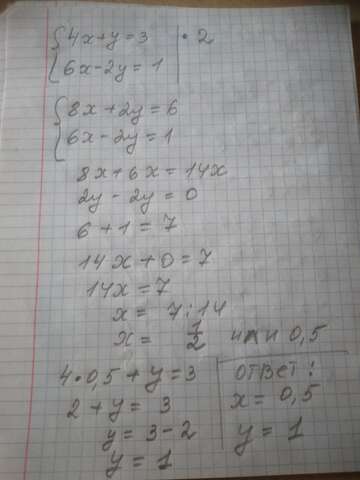 {4x+y=3 | • 2
{6x-2y=1
{8x+2y=6
{6x-2y=1
8x+6x=14x
2y-2y=0
6+1=7
14x+0=7
14x=7
x= 7:14
x= 1/2 или 0,5
4•0,5+y=3
2+y=3
y=3-2
y=1
ответ:
x=0,5
y=1